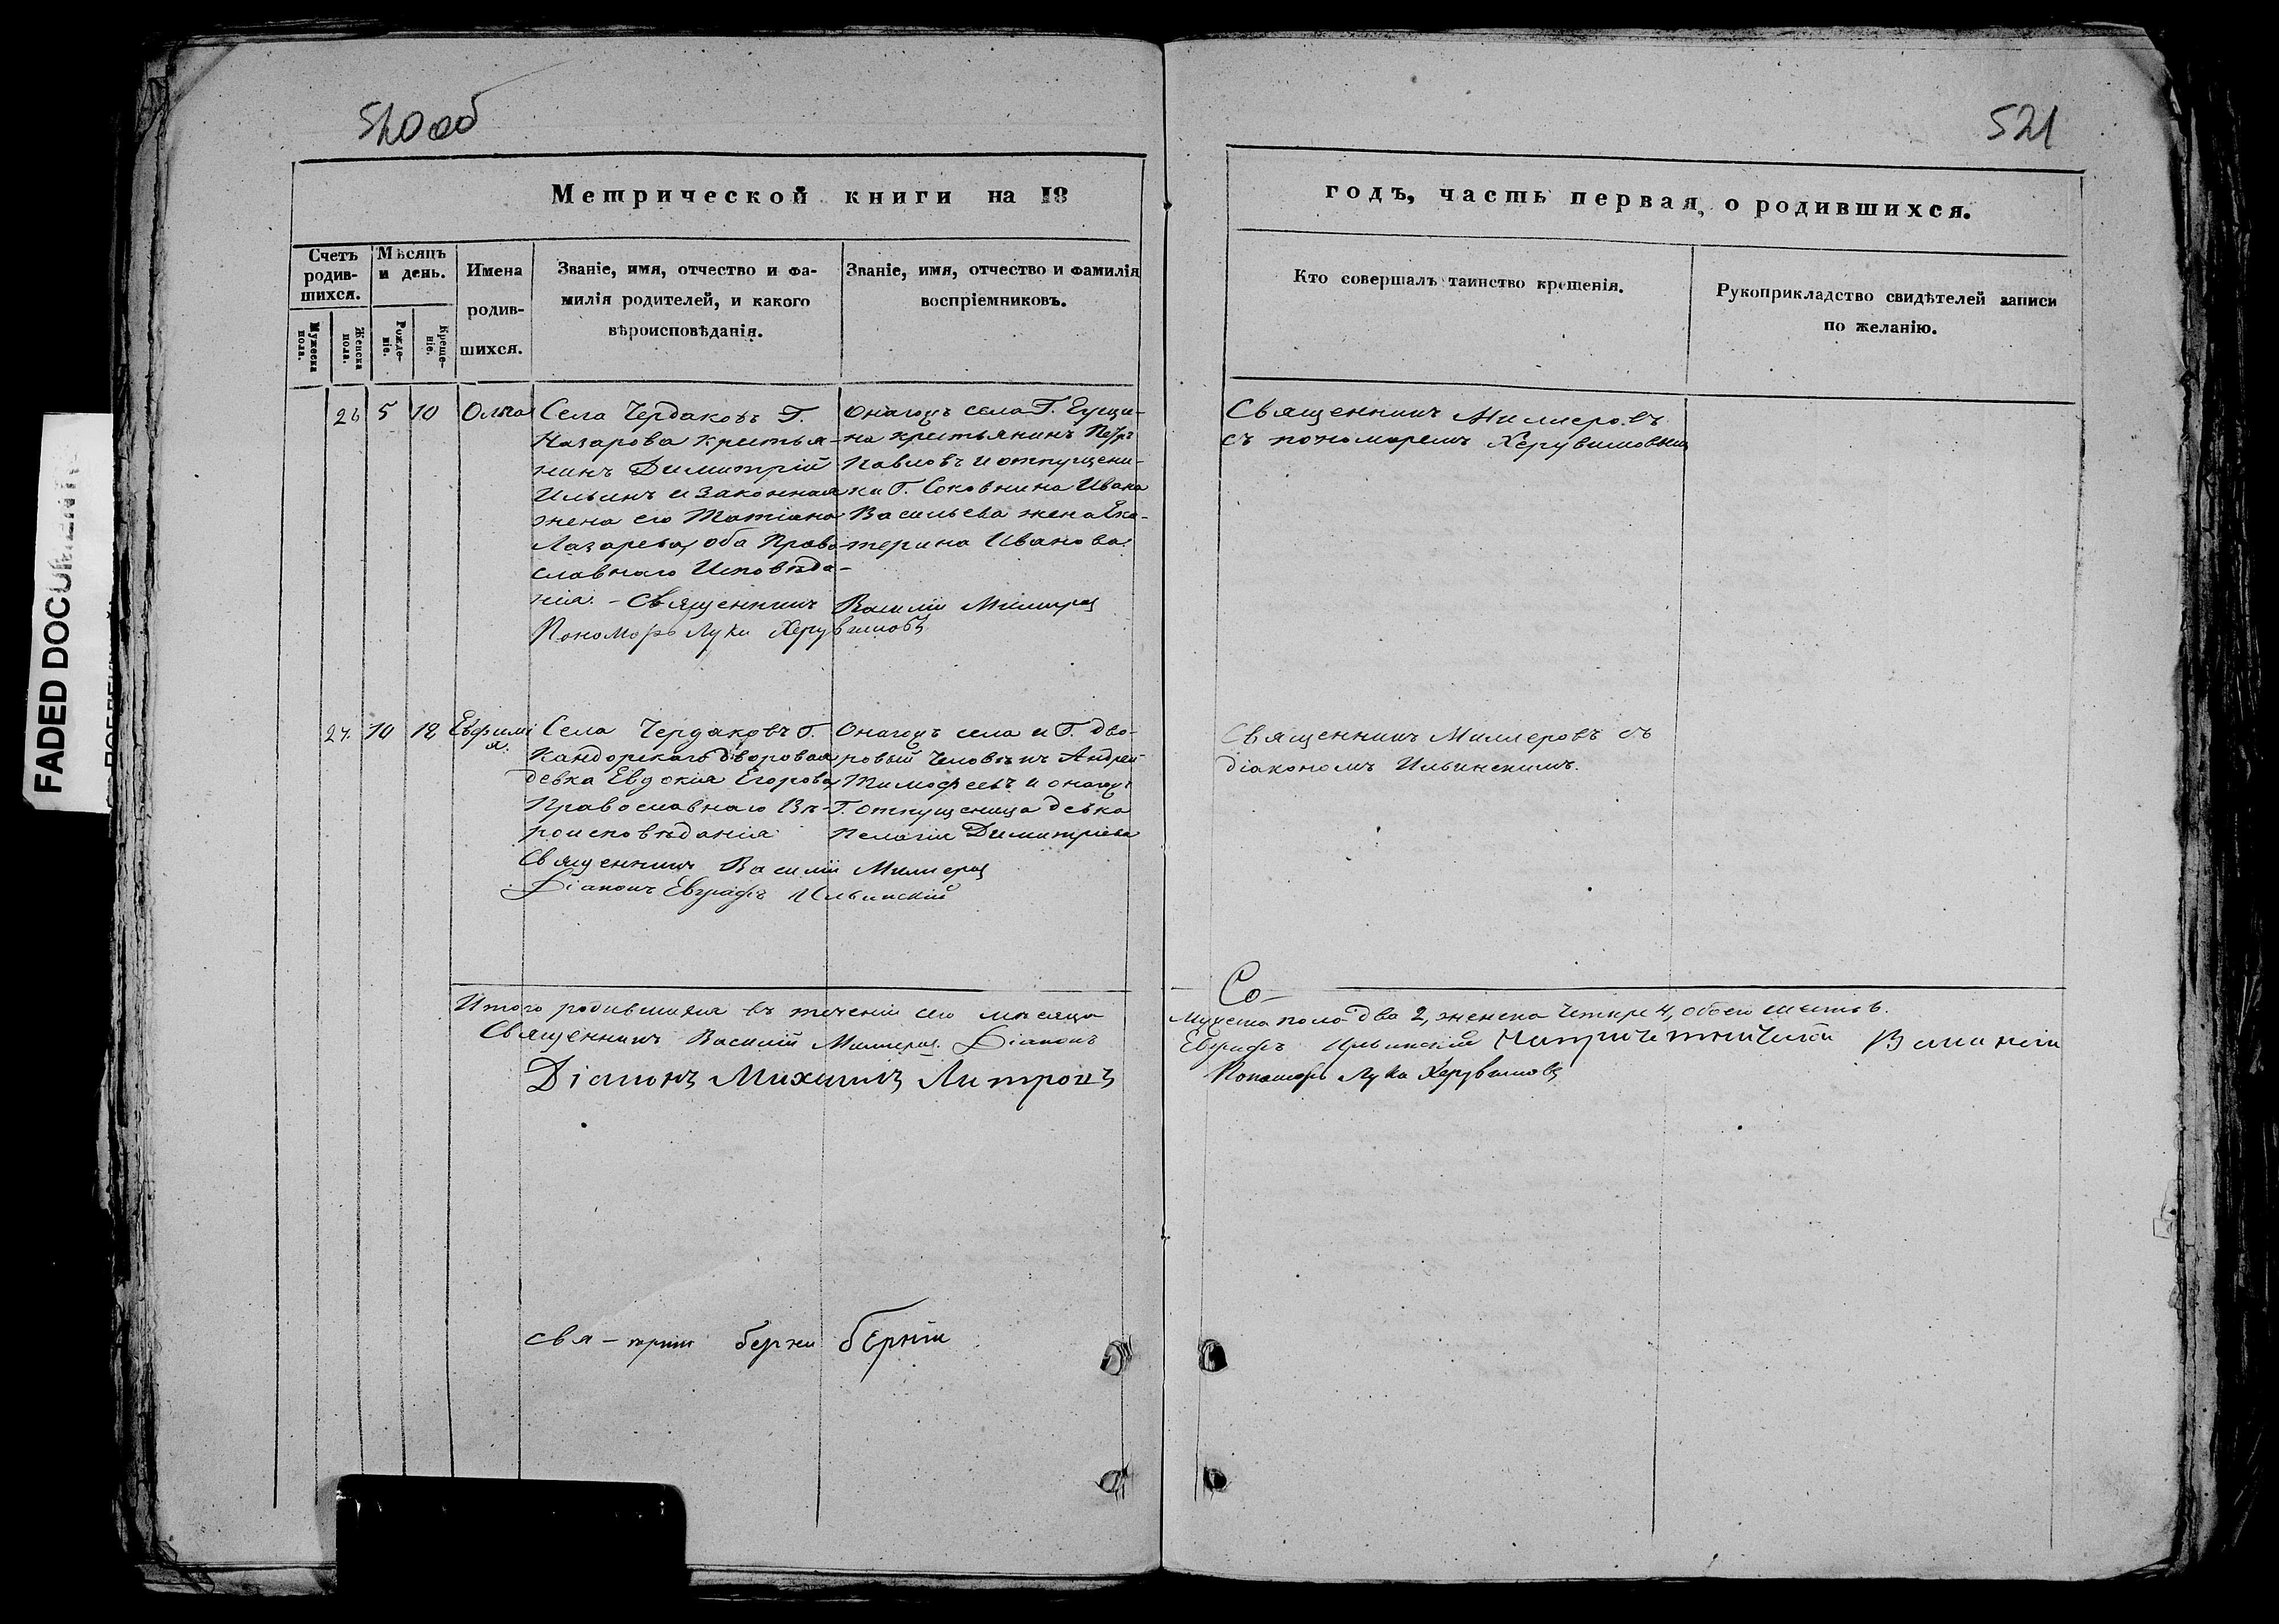 520 об
521
Метрической книги на 18
годъ, часть первая, о родившихся.
Счетъ родив-шихся.
Мѣсяцъ и день.
Имена родив-шихся.
Званіе, имя, отчество и фа-
милія родителей, и какого
вѣроисповѣданія.
Званіе, имя, отчество и фамилія
воспріемниковъ.
Кто совершалъ таинство крещенія.
Рукоприкладство свидѣтелей записи
по желанію.
Мужеска пола.
Женска пола.
Рожде-ніе.
Креще-ніе.
26 5 10 Ольга
Села Чердаковъ Г.
Назарова крестья-
нинъ Димитрій
Ильинъ и законная
жена его Татіана
Лазарева, оба Право-
славнаго Исповѣда-
нія. - Священникъ Василій Миллеровъ
Пономарь Лука Херувимовъ
Онагожъ села Г.
на крестьянинъ Петръ
Павловъ и отпущени-
ка Г. Соковнина Ивана
Васильева жена Ека-
терина Иванова.
Священникъ Миллеровъ
съ пономаремъ Херувимовым
27. 10 12 Евфимі
я.
Села Чердаковъ Г.
Кандорскаго дворовая
девка Евдокія Егорова
Православнаго Вѣ-
роисповѣданія
Священникъ Василій Миллеровъ
Діаконъ Евграфъ Ильинскій
Онагожъ села и Г. дво-
ровый человѣкъ Андрей
Тимофеевъ и онагожъ
Г. отпущеница девка
Пелагія Димитріева
Священникъ Миллеровъ съ
діакономъ Ильинскимъ.
Со-
Итого родившихся въ теченіи сего мѣсяца
мужеска пола два 2, женска четыре 4, обоего шесть 6.
Священникъ Василій Миллеровъ. Діаконъ
Евграфъ Ильинскій
Діаконъ Михаилъ
Пономарь Лука Херувимовъ
свя-